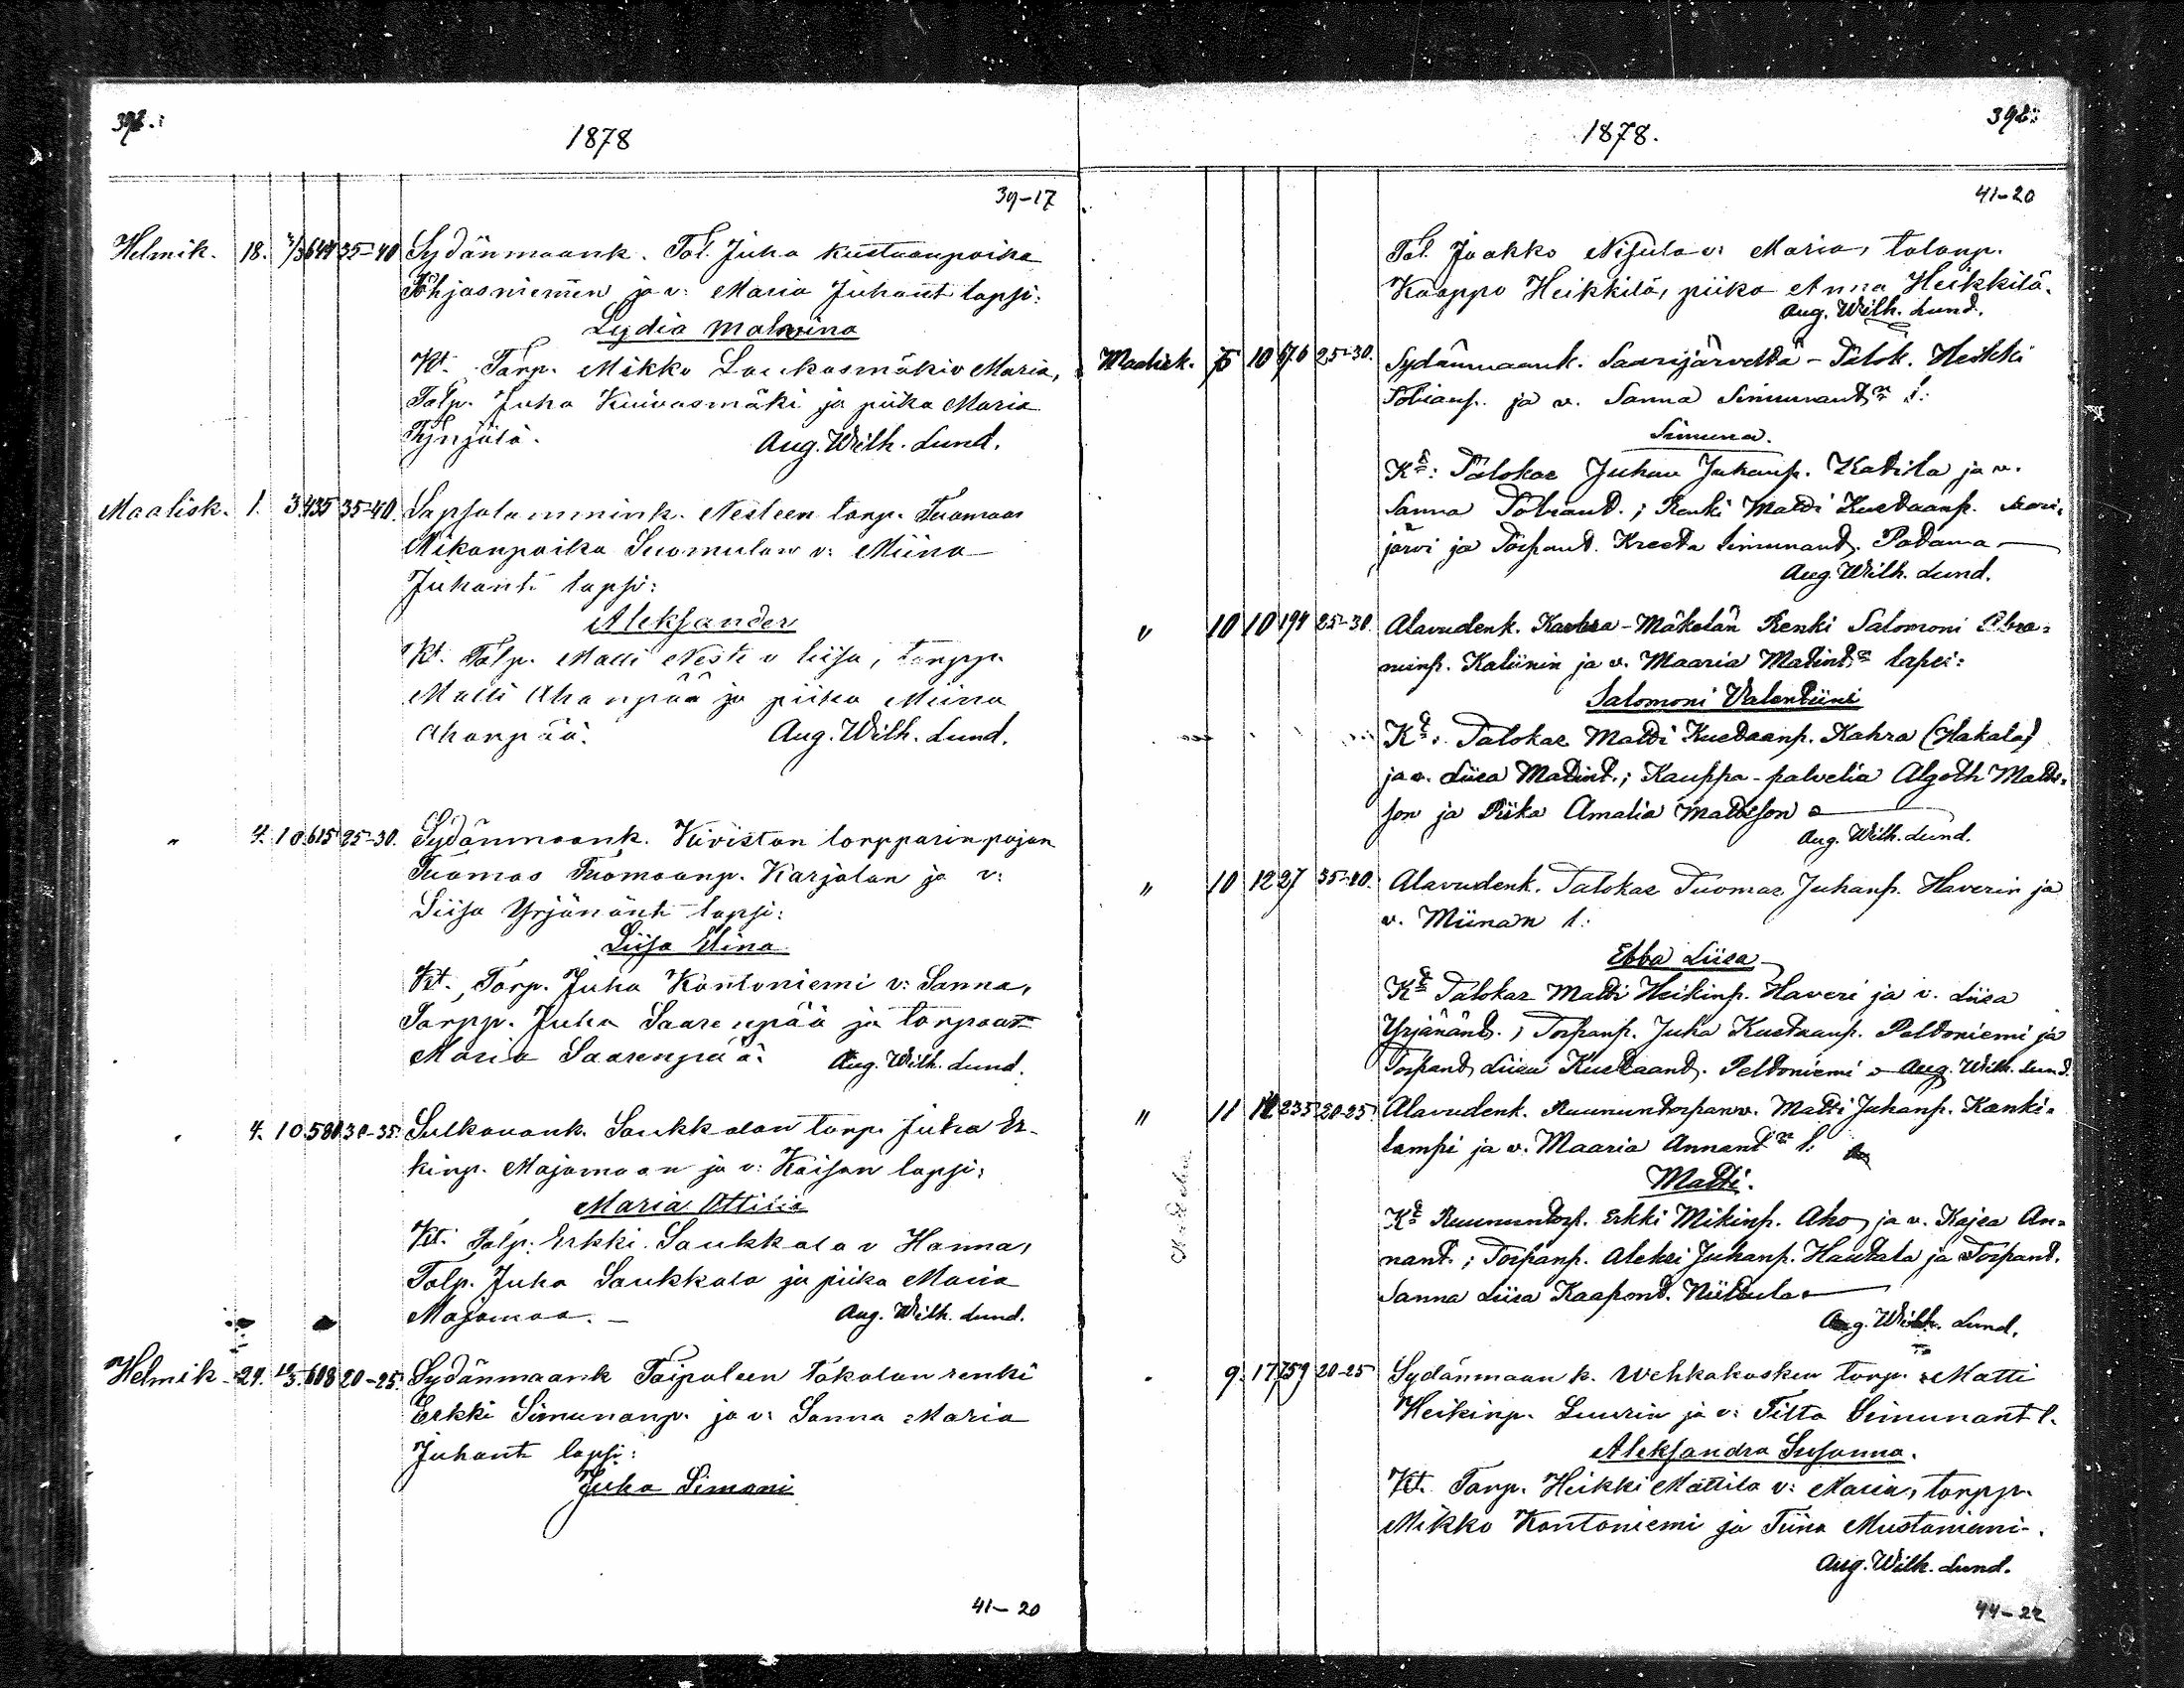 1878
39-17
Helmik. 18. 644 35-40 Sydänmaank. Tal. Juha Kustaanpoika
Pohjasniemen ja v: Maria Juhant lapsi:
Lydia Malwina
Kt. Torp. Mikko Laukasmäki v Maria,
Talp. Juha Kuivasmäki ja piika Maria
Tynjälä. Aug. Wilh. Lund.
Maalisk. 1. 3 435 35-40. Sapsalammink. Nesteen torp. Tuomaas
Mikonpoika Suomulan v: Miina
Juhant. lapsi:
Aleksander
Kt. Talp. Matti Neste v liisa, torpp.
Matti Ahonpää ja piika Miina
Ahonpää. Aug. Wilh. Lund.
" 4. 10 615 25-30. Sydänmaank. Kiviston torpparinpojan
Tuomas Tuomaanp. Karjalan ja v:
Liisa Yrjänänt lapsi:
Liisa Elina
Kt., Torp. Juha Kontoniemi v: Sanna,
Torpp. Juha Saarenpää ja
Maria Saarenpää. Aug. Wilh. Lund.
" 4. 10 580 30-35. Sulkavank. Saukkolan torp. Juha Er-
kinp. Majamaan ja v: Kaisan lapsi:
Maria Ottilia
Kt. Talp. Erkki Saukkola v Hanna,
Talp. Juha Saukkola ja piika Maria
Majamaa. Aug. Wilh. Lund.
Helmik. 24. 608 20-25. Sydänmaank Taipaleen Takalan renki
Erkki Simunanp. ja v: Sanna Maria
Juhant lapsi:
Juha Simoni
41-20
1878.
41-20
Tal. Jaakko Nisula v: Maria, talonp.
Kaappo Heikkilä, piika Anna Heikkilä.
Aug. Wilh. Lund.
Maalisk. 5 10 676 25-30. Sydänmaank. Saarijärveltä - Talok. Heikki
Tobianp. ja v. Sanna Simunant l:
Simuna.
Kt: Talokas Juhan Juhanp. Katila ja v.
Sanna Tobiant.; Renki Matti Kustaanp. Saari-
järvi ja Torpant. Kreeta Simunant. Patama
Aug. Wilh. Lund.
" 10 10 194 25-30 Alavudenk. Kahra-Mäkelän Renki Salomoni Abra-
minp. Kaliinin ja v. Maaria Matint. lapsi:
Salomoni Valentiini
Kt: Talokas Matti Kustaanp. Kahra (Hakala)
ja v. Liisa Matint.; Kauppa-palvelia Algoth Matts-
son ja Piika Amalia Mattsson
Aug. Wilh. Lund.
" 10 12 27 35-40. Alavudenk. Talokas Tuomas Juhanp. Haverin ja
v. Miinan l:
Ebba Liisa
Kt Talokas Matti Heikinp. Haveri ja v. Liisa
Yrjänänt.; Torpanp. Juha Kustaanp. Peltoniemi ja
Torpant. Liisa Kustaant. Peltoniemi Aug. Wilh. Lund.
" 11 12 235 20-25. Alavudenk. Matti Juhanp. Kanki-
lampi ja v. Maaria Annant l:
Matti.
Kt Ruununtorp. Erkki Mikinp. Aho ja v. Kajsa An-
nant.; Torpanp. Aleksi Juhanp. Hautala ja Torpant.
Sanna Liisa Kaapont. Niittula
Aug. Wilh. Lund.
9. 17 759 20-25 Sydänmaan k. Wehkakosken torp. Matti
Heikinp. Luurin ja v: Tilta Simunant l.
Aleksandra Susanna.
Kt. Torp. Heikki Mattila v: Maria, torpp.
Mikko Kontoniemi ja Tiina Mustaniemi.
Aug. Wilh. Lund.
44-22